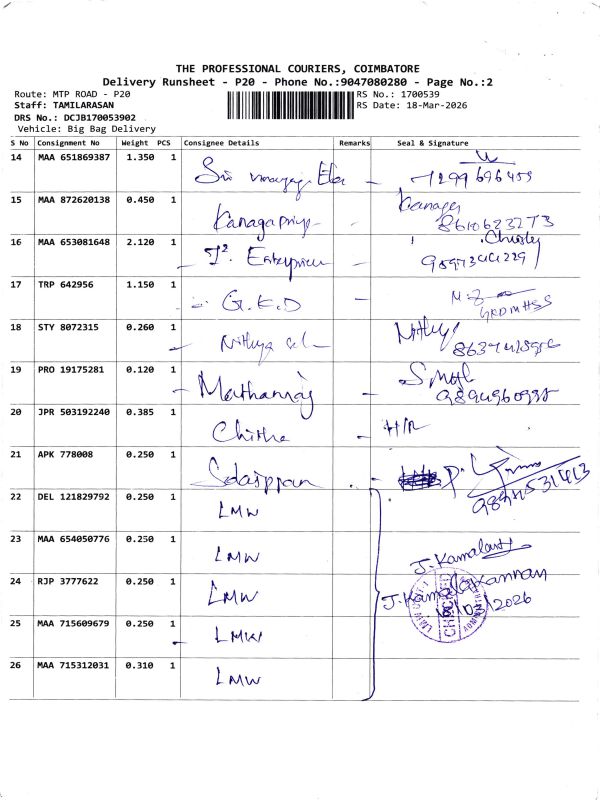 THE PROFESSIONAL COURIERS, COIMBATORE
Delivery Runsheet - P20 - Phone No.:9047080280 - Page No.:2
Route: MTP ROAD - P20
RS No.: 1700539
Staff: TAMILARASAN
RS Date: 18-Mar-2026
DRS No.: DCJB170053902
Vehicle: Big Bag Delivery
S No Consignment No Weight PCS Consignee Details Remarks Seal & Signature
14 MAA 651869387 1.350 1 Sri
15 MAA 872620138 0.450 1 Kanagapriya 8610623273
16 MAA 653081648 2.120 1 J². Enterprises
17 TRP 642956 1.150 1 G.E.D
18 STY 8072315 0.260 1 Nithya
19 PRO 19175281 0.120 1 Mathanraj
20 JPR 503192240 0.385 1 Chitha H/R
21 APK 778008 0.250 1
22 DEL 121829792 0.250 1 LMW
23 MAA 654050776 0.250 1 LMW J. Kamala
24 RJP 3777622 0.250 1 LMW J. Kamalakannan
2026
CHECKED
25 MAA 715609679 0.250 1 LMW
26 MAA 715312031 0.310 1 LMW